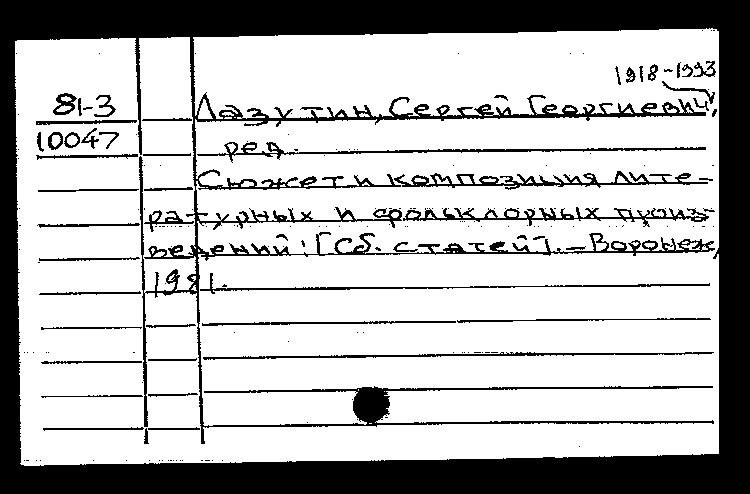 1918-1993
81-3 Лазутин, Сергей Георгиевич,
10047 ред.
Сюжет и композиция лите-
ратурных и фольклорных произ-
ведений: [Сб. статей]. - Воронеж,
1981.